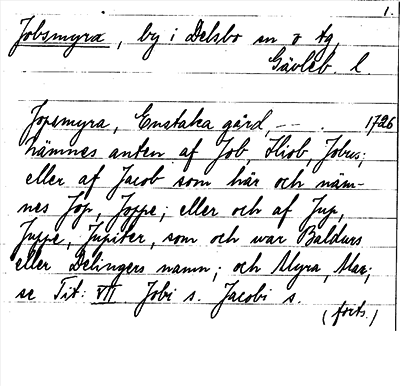 1.
Jobsmyra, by i Delsbo sn o tg,
Gävleb. l.
Jopsmyra, Enstaka gård, —— . 1726
nämnes anten af Job, Hiob, Jobus;
eller af Jacob som här och näm-
nes Jop, Joppe; eller och af Jup,
Juppe, Jupiter, som och war Baldurs
eller Delingers namn; och Myra, Mar;
se Tit: VII Jobi s. Jacobi s.
(forts.)